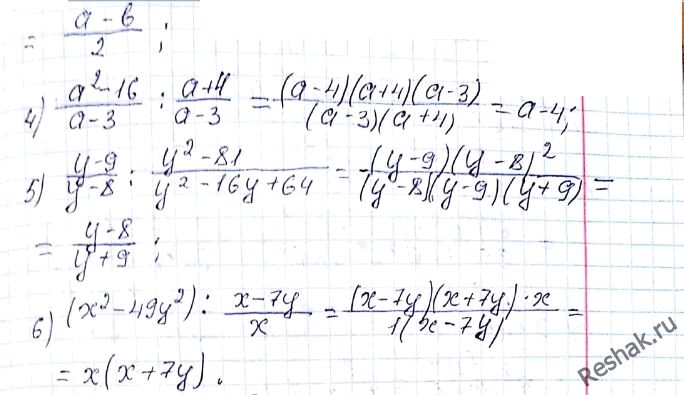 = (a-b)/2 ;
4) (a²-16)/(a-3) : (a+4)/(a-3) = ((a-4)(a+4)(a-3))/((a-3)(a+4)) = a-4;
5) (y-9)/(y-8) : (y²-81)/(y²-16y+64) = ((y-9)(y-8)²)/((y-8)(y-9)(y+9)) =
= (y-8)/(y+9) ;
6) (x²-49y²) : (x-7y)/x = ((x-7y)(x+7y)·x)/(1(x-7y)) =
= x(x+7y).
Reshak.ru